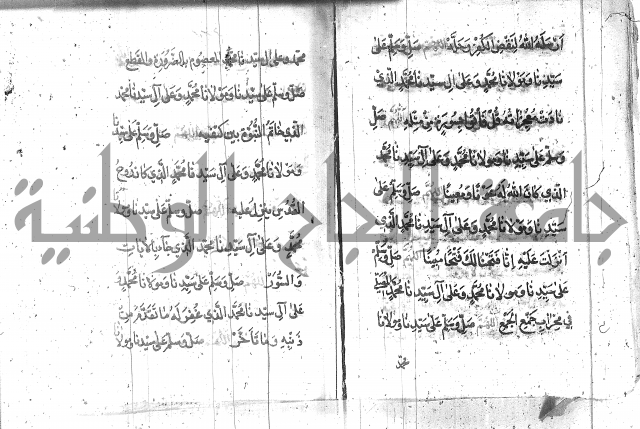 صل وسلم على
سيدنا ومولانا محمد وعلى آل سيدنا محمد الذي
قل فأتوا بسورة من مثله اللهم صل
وسلم على سيدنا ومولانا محمد وعلى آل سيدنا محمد
الذي كان الله له اللهم صل وسلم على
سيدنا ومولانا محمد وعلى آل سيدنا محمد الذي
انزلت عليه انا فتحنا لك فتحا مبينا اللهم صل وسلم
على سيدنا ومولانا محمد وعلى آل سيدنا محمد
في محراب جميع اللهم صل وسلم على سيدنا ومولانا
محمد
محمد وعلى آل سيدنا محمد المعصوم
صل وسلم على سيدنا ومولانا محمد وعلى آل سيدنا محمد
الذي خاتم النبوة بين كتفيه اللهم صل وسلم على سيدنا
ومولانا محمد وعلى آل سيدنا محمد الذي كان روح
القدس عليه اللهم صل وسلم على سيدنا ومولانا
محمد وعلى آل سيدنا محمد الذي جاء بالآيات
والسور اللهم صل وسلم على سيدنا ومولانا محمد و
على آل سيدنا محمد الذي غفر له ما تقدم من
ذنبه وما تأخر اللهم صل وسلم على سيدنا ومولانا
جامعة النجاح الوطنية